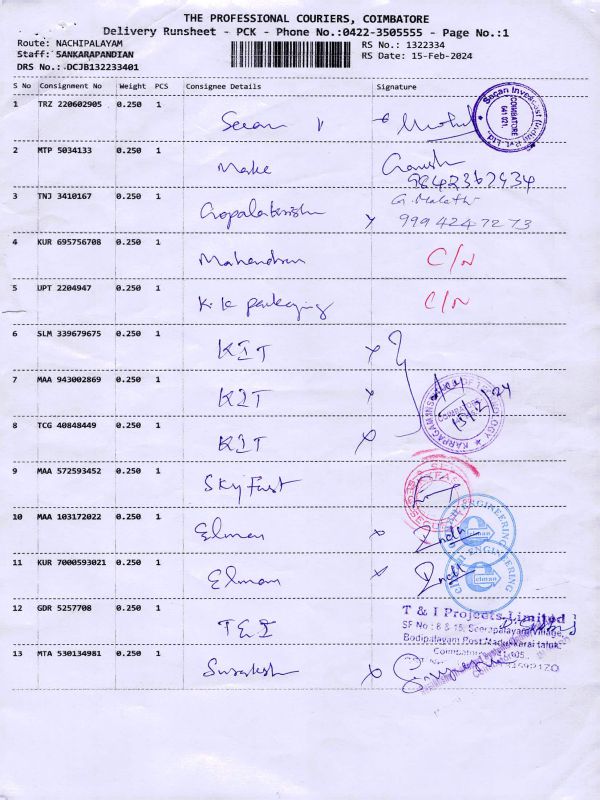 THE PROFESSIONAL COURIERS, COIMBATORE
Delivery Runsheet - PCK - Phone No.:0422-3505555 - Page No.:1
Route: NACHIPALAYAM RS No.: 1322334
Staff: SANKARAPANDIAN RS Date: 15-Feb-2024
DRS No.: DCJB132233401
S No Consignment No Weight PCS Consignee Details Signature
1 TRZ 220602905 0.250 1 Secan
Secan Invescast (India) Pvt. Ltd.
COIMBATORE
641 021.
2 MTP 5034133 0.250 1 Make
9842367934
3 TNJ 3410167 0.250 1 Gopalakrishn G. Malathi
999 424 72 73
4 KUR 695756708 0.250 1 Mahendran C/N
5 UPT 2204947 0.250 1 K.K packaging C/N
6 SLM 339679675 0.250 1 KIT
7 MAA 943002869 0.250 1 KIT
15/2/24
KARPAGAM INSTITUTE OF TECHNOLOGY
COIMBATORE
8 TCG 40848449 0.250 1 KIT
9 MAA 572593452 0.250 1 Sky Fast
10 MAA 103172022 0.250 1 Elman
ENGINEERING
elman
11 KUR 7000593021 0.250 1 Elman
ENGINEERING
elman
12 GDR 5257708 0.250 1 T & I
T & I Projects Limited
SF No : 8 & 15, Seerapalayam Village,
Bodipalayam Post, Madukkarai taluk,
13 MTA 530134981 0.250 1